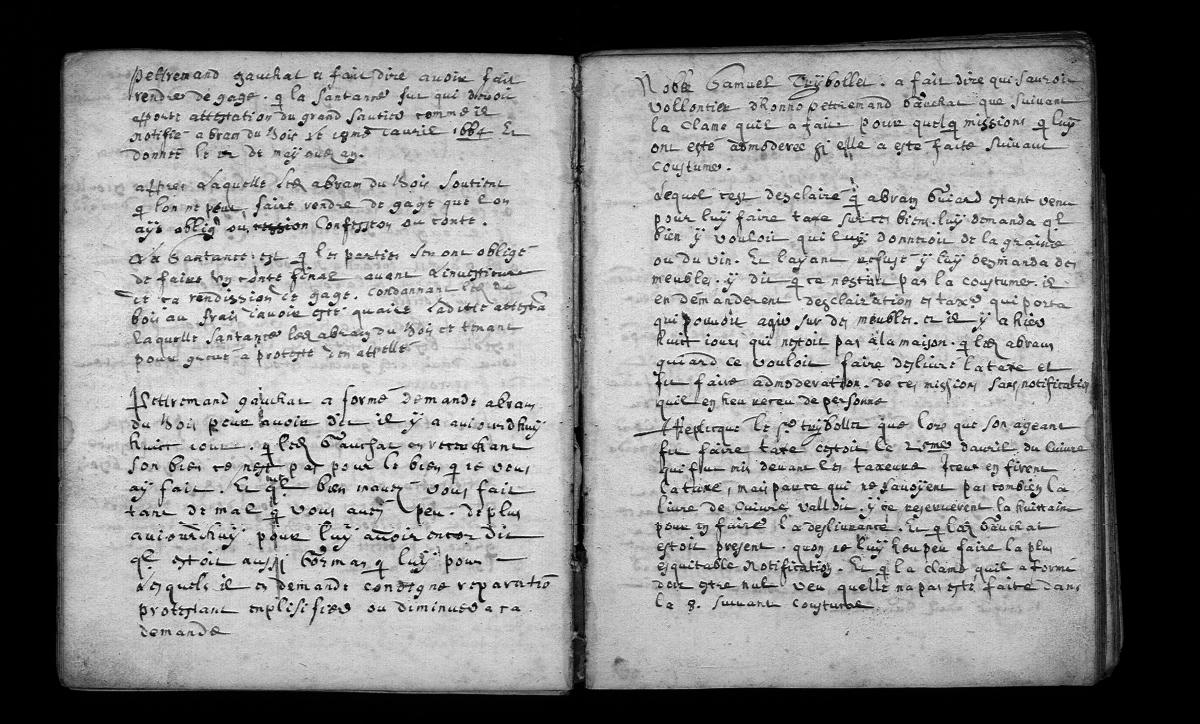 Pettremand gauchat a fait dire avoir fait
rendre de gage. q la Santance fut qui devoit
apporté attestation du grand Sautier comme il
notifié abram du bois le 18me d'avril 1664 Et
donné le 12 de may audt an.
appres Laquelle led abram du bois soutient
q lon ne peut faire rendre de gage que lon
aye obligon ou Confession ou conte.
La Santance est q les parties sen ont obligé
de faire un conte final avant L'investiture
et ca rendission de gage. Condannant led du
bois au frais avoir esté quaire Ladite attesta
Laquelle Santance led abram du bois se tenant
pour grevé a protesté d'en appellé
Pettremand gauchat a formé demande abram
du bois pour avoir dit il y a aujourdhuy
huict jours. q led Gauchat en
Son bien ce nest pas pour le bien q ie vous
ay fait. Et q bien vous fait
tant de mal q vous avez peu. De plus
aujourdhuy pour luy avoir encor dit
q estoit aussi q luy pour
Lesquels il en demande condigne reparatio
protestant emplisifier ou diminuer a ca
demande
Noble Samuel Trybollet. a fait dire qui Sauroit
vollontier dhonno pettremand Gauchat que suivant
la Clame quil a fait pour quelq missions q luy
ont esté admoderee si elle a este faite suivant
coustume.
Lequel cest desclairé q abram Guiard estant venu
pour luy faire taxe sur ces bien. luy demanda q
bien y vouloit qui luy donneroit de la graine
ou du vin. Et layant refusé y luy desmanda des
meubles. y dit q ce nestoit pas la coustume. il
en demanderent desclairation es taxe qui porta
qui pouvoit agir sur des meubles. et il y a hier
huict jours qui nestoit pas a la maison. q led abram
guiard ce vouloit faire deslivré la taxe et
fit faire admoderation. de ces missions sans notification
quil en heu receu de personne
Replicque le Sr trybollet que lors que son ageant
fit faire taxe cestoit le 2eme davril du cuivre
qui fut mis devant les taxeure Iceux en firent
la taxe, mais parce qui ne savoyent pas combien la
livre de cuivre valloit. y ce reserverent la huittain
pour en faire la deslivrance. Et q led Gauchat
estoit present. quon ne luy heu peu faire la plus
equitable Notification. Et q la clame quil a formé
doit estre nul veu quelle na pas esté faite dans
la 8. suivant coustume